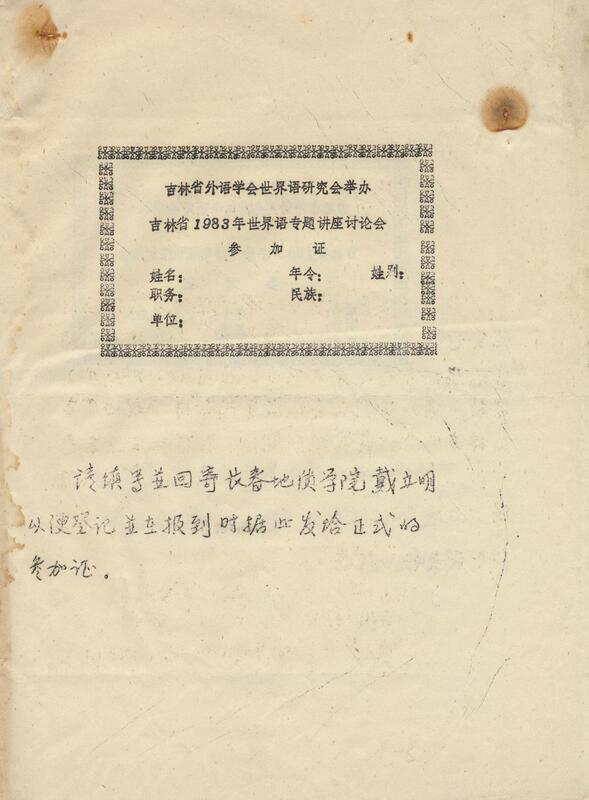 吉林省外语学会世界语研究会举办
吉林省1983年世界语专题讲座讨论会
参加证
姓名： 年令： 姓别：
职务： 民族：
单位：
请填写並回寄长春地质学院戴立明
以便登记並在报到时据此发给正式的
参加证。